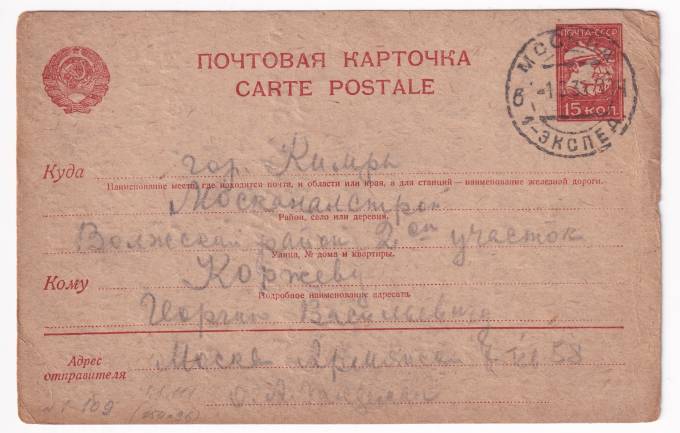 ПОЧТОВАЯ КАРТОЧКА
CARTE POSTALE
ПОЧТА·СССР
15 КОП.
МОСКВА
ЭКСПЕД
Куда гор. Кимры
Наименование места, где находится почта, и области или края, а для станций — наименование железной дороги.
Москаналстрой
Район, село или деревня.
Волжский район 2ой участок
Улица, № дома и квартиры.
Кому Коржеву
Подробное наименование адресата
Георгию Васильевичу
Адрес отправителя
Москва 58